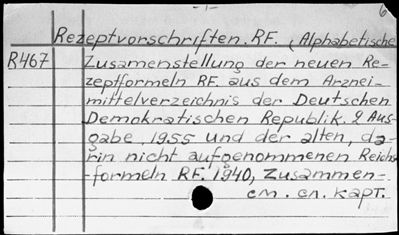 -1-
6
Rezeptvorschriften. RF. (Alphabetische
R467 Zusamenstellung der neuen Re-
zeptformeln RF. aus dem Arznei-
mittelverzeichnis der Deutschen
Demokratischen Republik. 2 Aus-
gabe, 1955 und der alten, da-
rin nicht aufgenommenen Reichs
formeln RF. 1940, Zusammen-
см. сл. карт.